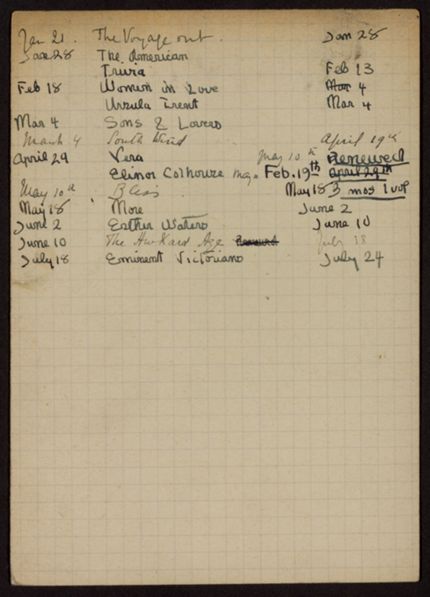 Jan 21. The Voyage out. Jan 28
Jan 28 The American
Trivia Feb 13
Feb 18 Women in Love Mar 4
Urzula Trent Mar 4
Mar 4 Sons & Lovers
March 4 South Wind April 19th
April 29 Vera May 10th Renewed
Elinor Colhouze mag. Feb. 19th April 29th
May 10th Bliss May 18 3 mos 1 vol
May 18 More June 2
June 2 Esther Waters June 10
June 10 The Awkard Age Renewed July 18
July 18 Eminent Victorians July 24